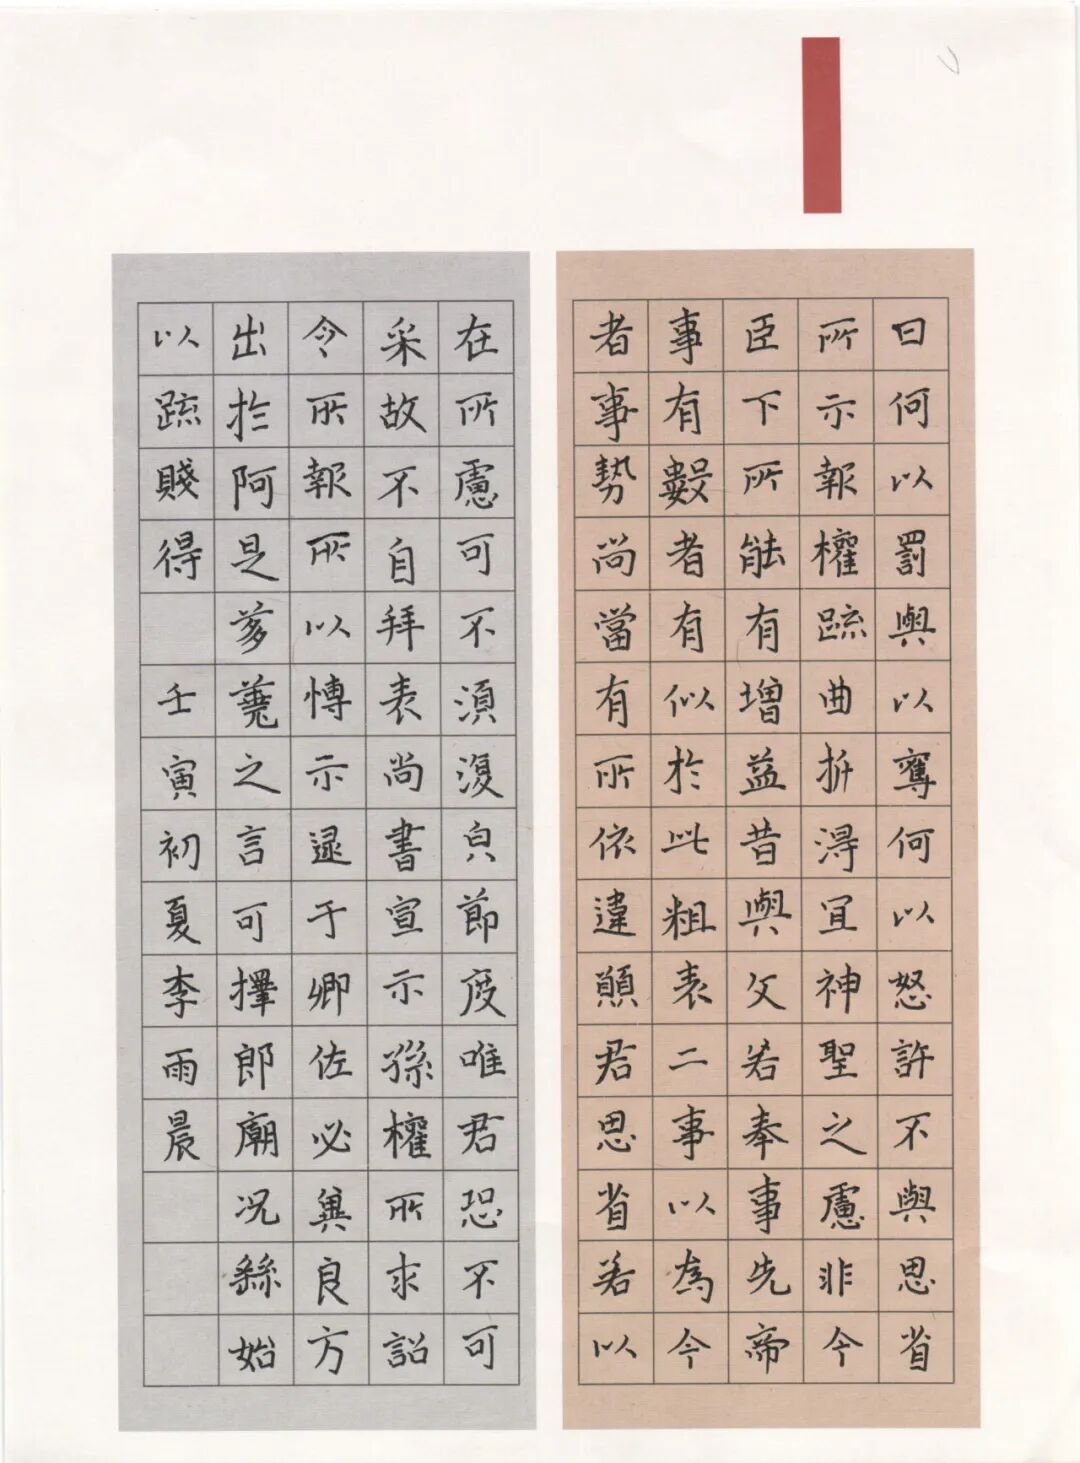 曰何以罰與以奪何以怒許不與思省
所示報權䟽曲折得宜神聖之慮非今
臣下所能有增益昔與文若奉事先帝
事有數者有似於此粗表二事以為今
者事勢尚當有所依違願君思省若以
在所慮可不須復皃節度唯君恐不可
采故不自拜表尚書宣示孫權所求詔
令所報所以愽示逮于卿佐必冀良方
出於阿是芻蕘之言可擇郎廟況繇始
以䟽賤得 壬寅初夏李雨晨